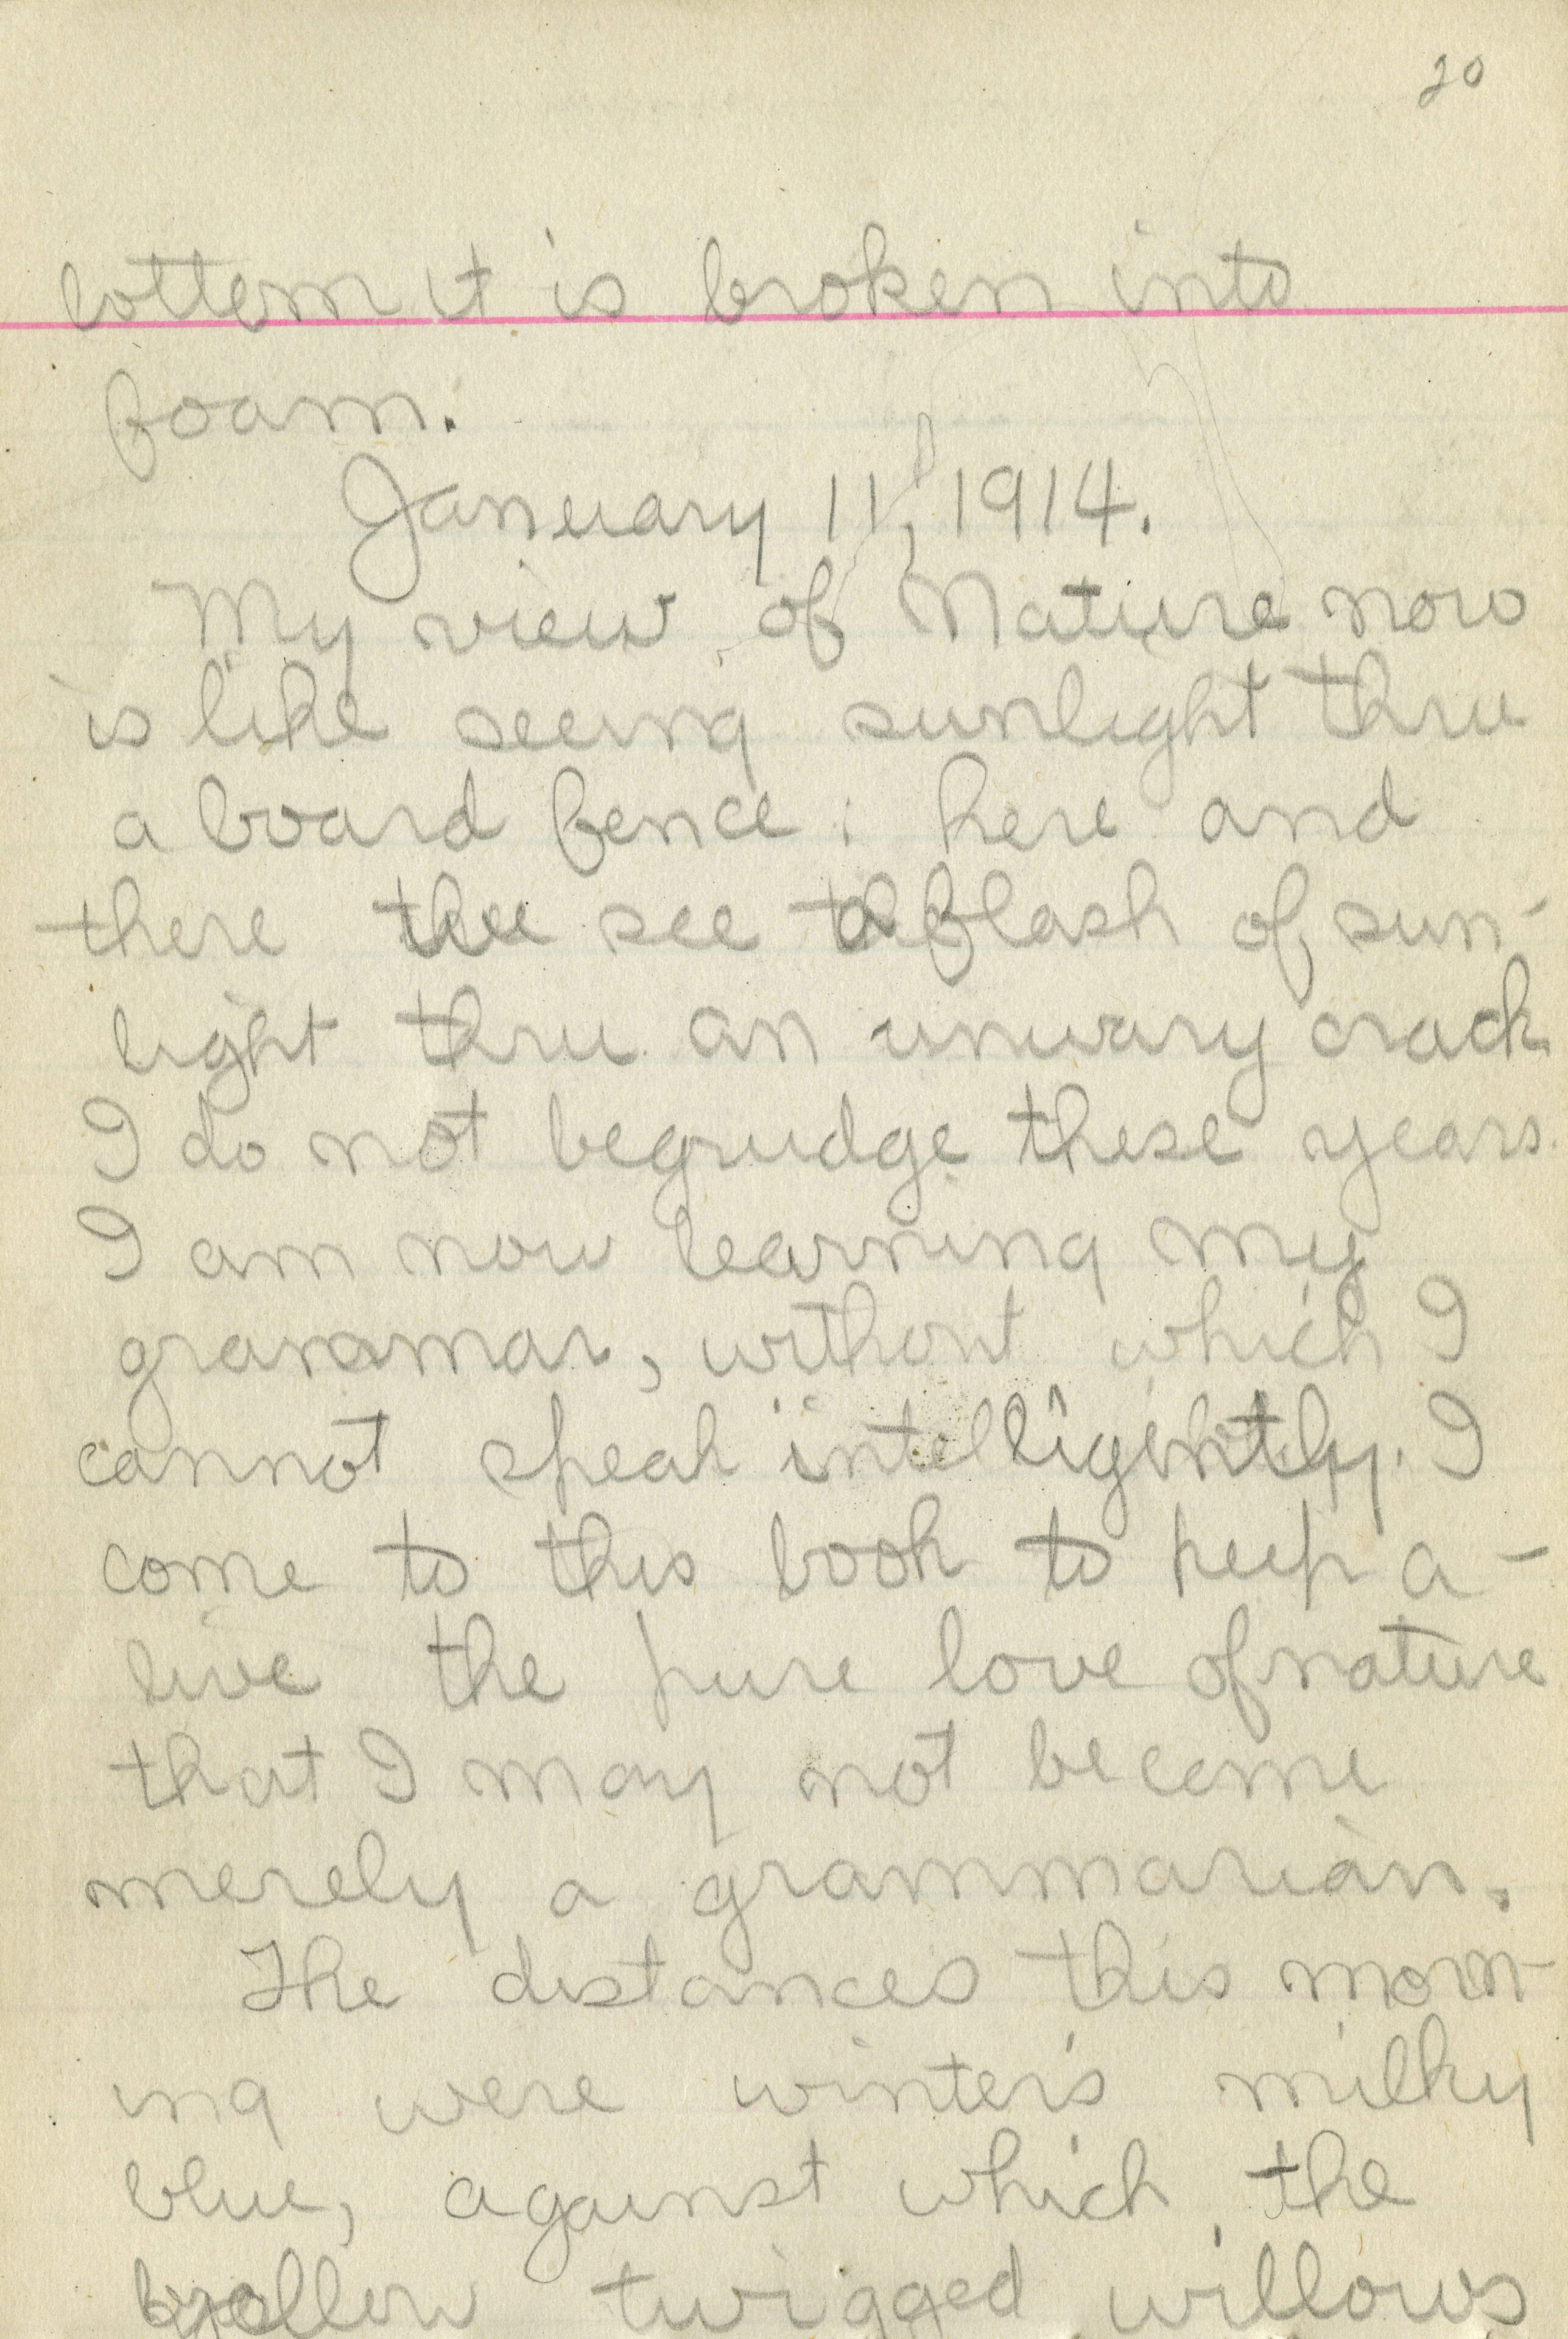 20
bottom it is broken into
foam.
January 11, 1914.
My view of Nature now
is like seeing sunlight thru
a board fence; here and
there see a flash of sun-
light thru an unwary crack.
I do not begrudge these years.
I am now learning my
grammar, without which I
cannot speak intelligently. I
come to this book to keep a-
live the pure love of nature
that I may not become
merely a grammarian.
The distances this morn-
ing were winter's milky
blue, against which the
yellow twigged willows